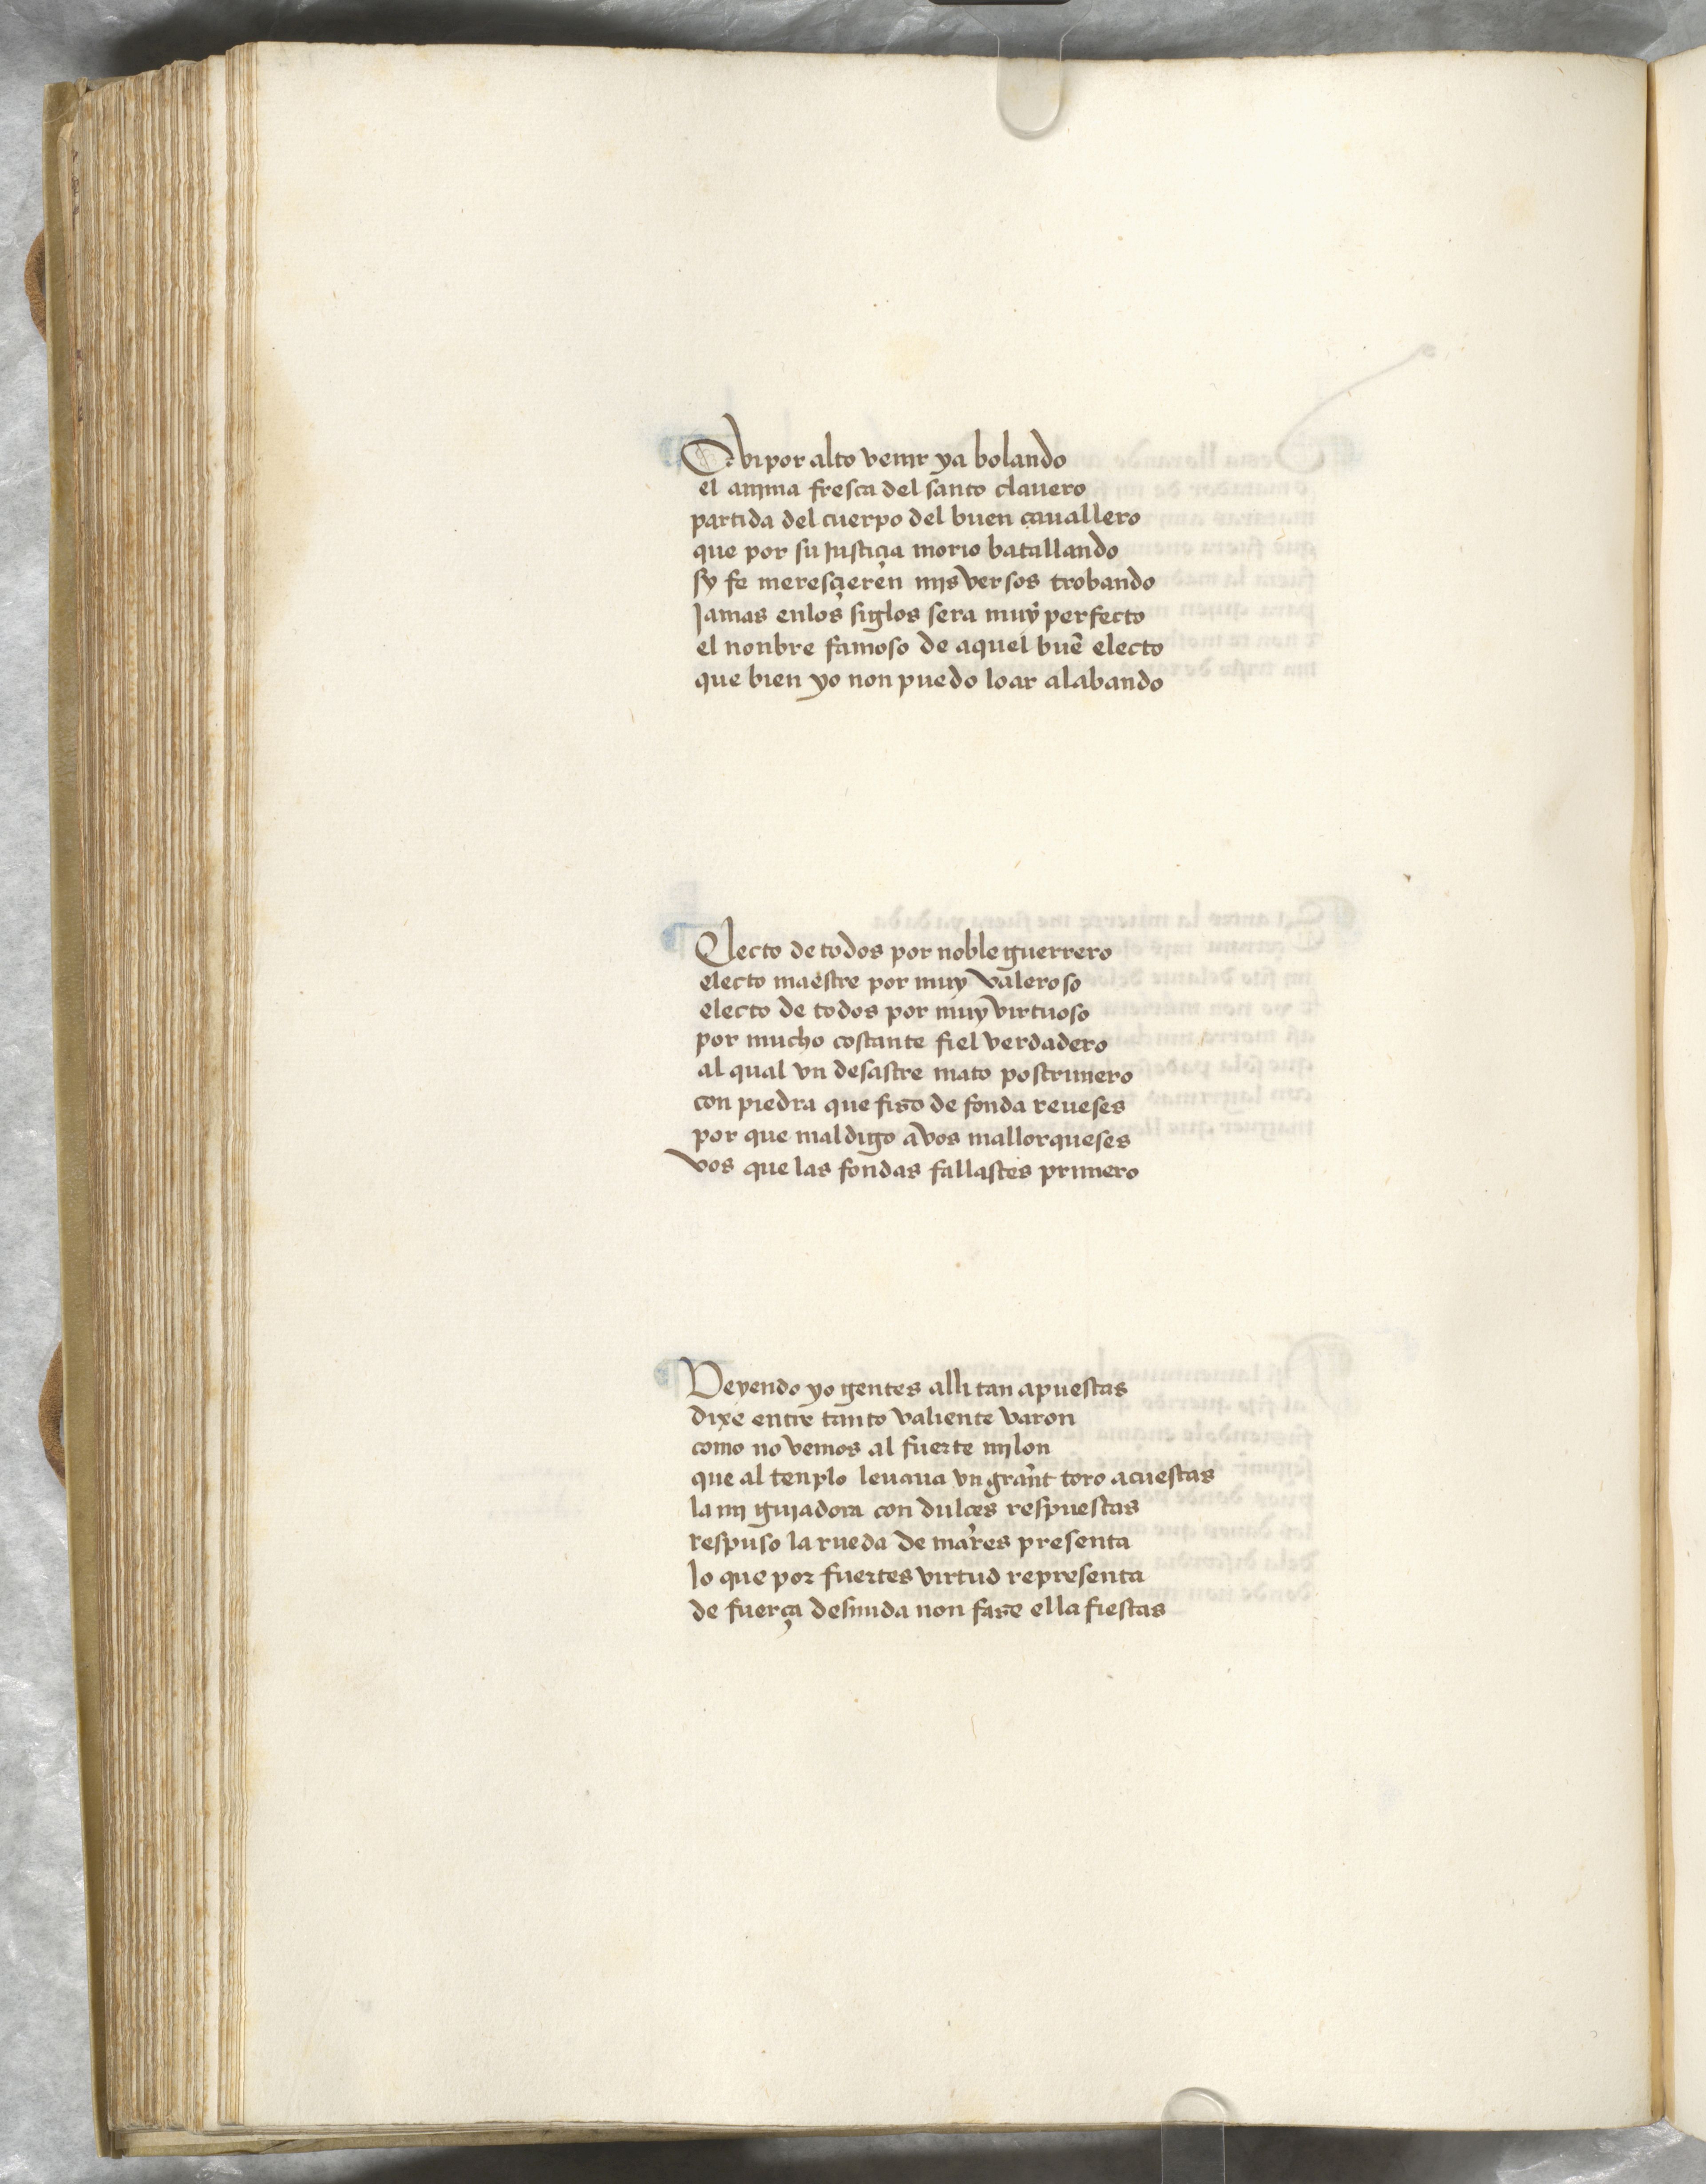 O vi por alto venir ya bolando
el anjma fresca del santo clauero
partida del cuerpo del buen cauallero
que por su Justiçia morio batallando
sy fe meresçieren mjs versos trobando
Jamas enlos siglos sera muy perfecto
el nonbre famoso de aquel buẽ electo
que bien yo non puedo loar alabando
Electo de todos por noble guerrero
electo maestre por muy valeroso
electo de todos por muy virtuoso
por mucho costante fiel verdadero
al qual vn desastre mato postrimero
con piedra que fizo de fonda reueses
por que maldigo a vos mallorqueses
vos que las fondas fallastes primero
Veyendo yo gentes alli tan apuestas
dixe entre tanto valiente varon
como no vemos al fuerte mjlon
que al tenplo leuaua vn grant toro acuestas
la mj gujadora con dulces respuestas
respuso la rueda de mares presenta
lo que por fuertes virtud representa
de fuerça desnuda non faze ella fiestas